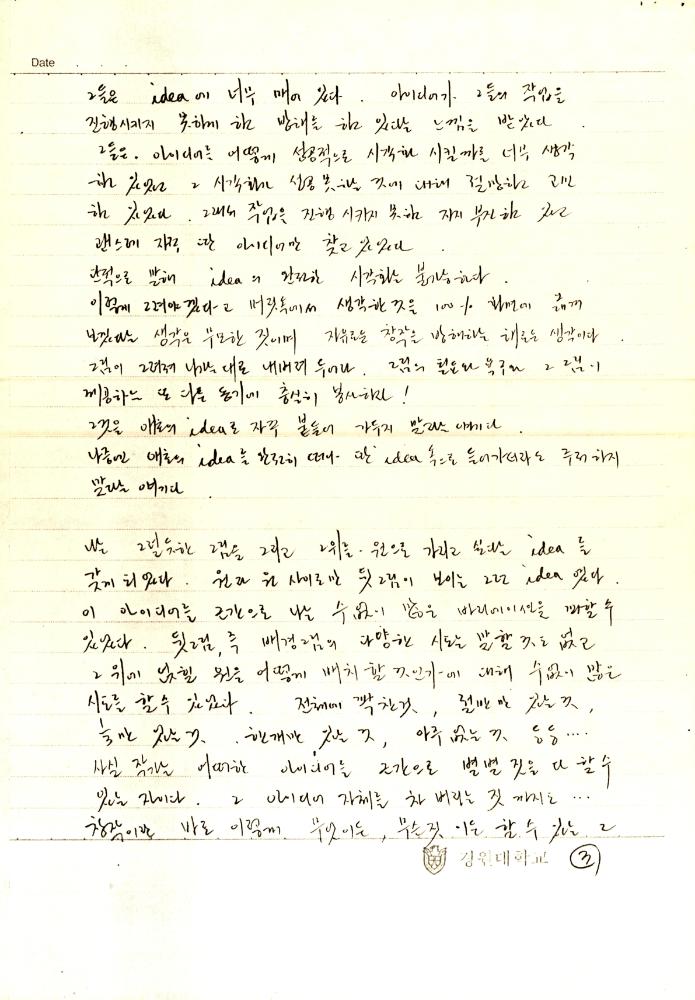 Date . . .
그들은 idea에 너무 매여 있다. 아이디어가 그들의 작업을
진행시키지 못하게 하고 방해를 하고 있다는 느낌을 받았다.
그들은. 아이디어를 어떻게 성공적으로 시각화 시킬까를 너무 생각
하고 있었고 그 시각화에 성공 못하는 것에 대해 절망하고 고민
하고 있었다. 그래서 작업을 진행 시키지 못하고 지지부진하고 있고
괜스레 자꾸 딴 아이디어만 찾고 있었다.
단적으로 말해 idea의 완전한 시각화는 불가능하다.
이렇게 그려야겠다고 머릿속에서 생각한 것을 100% 화면에 옮겨
보겠다는 생각은 무모한 짓이며 자유로운 창작을 방해하는 해로운 생각이다.
그림이 그려져 나가는대로 내버려 두어라. 그림의 필요와 욕구와 그 그림이
제공하는 또 다른 동기에 충실히 봉사하라!
그것은 애초의 idea로 자꾸 붙들어 가두지 말라는 얘기다.
나중엔 애초의 idea를 완전히 떠나 딴 idea 속으로 들어가더라도 주저하지
말라는 얘기다.
나는 그럴듯한 그림을 그리고 그 위를. 원으로 가리고 싶다는 idea를
갖게 되었다. 원과 원 사이로만 뒷그림이 보이는 그런 idea 였다.
이 아이디어를 근간으로 나는 수없이 많은 바리에이션을 꾀할 수
있었다. 뒷그림, 즉 배경그림의 다양한 시도는 말할 것도 없고
그 위에 얹힐 원을 어떻게 배치할 것인가에 대해 수없이 많은
시도를 할 수 있었다. 전체에 꽉 찬 것, 절반만 있는 것,
있는 것, 한개만 있는 것, 아주 없는 것 등등....
사실 작가는 어떠한 아이디어를 근간으로 별별 짓을 다 할 수
있는 자이다. 그 아이디어 자체를 차 버리는 짓 까지도...
창작이란 바로 이렇게 무엇이든, 무슨짓 이든 할 수 있는 그
경원대학교 ③